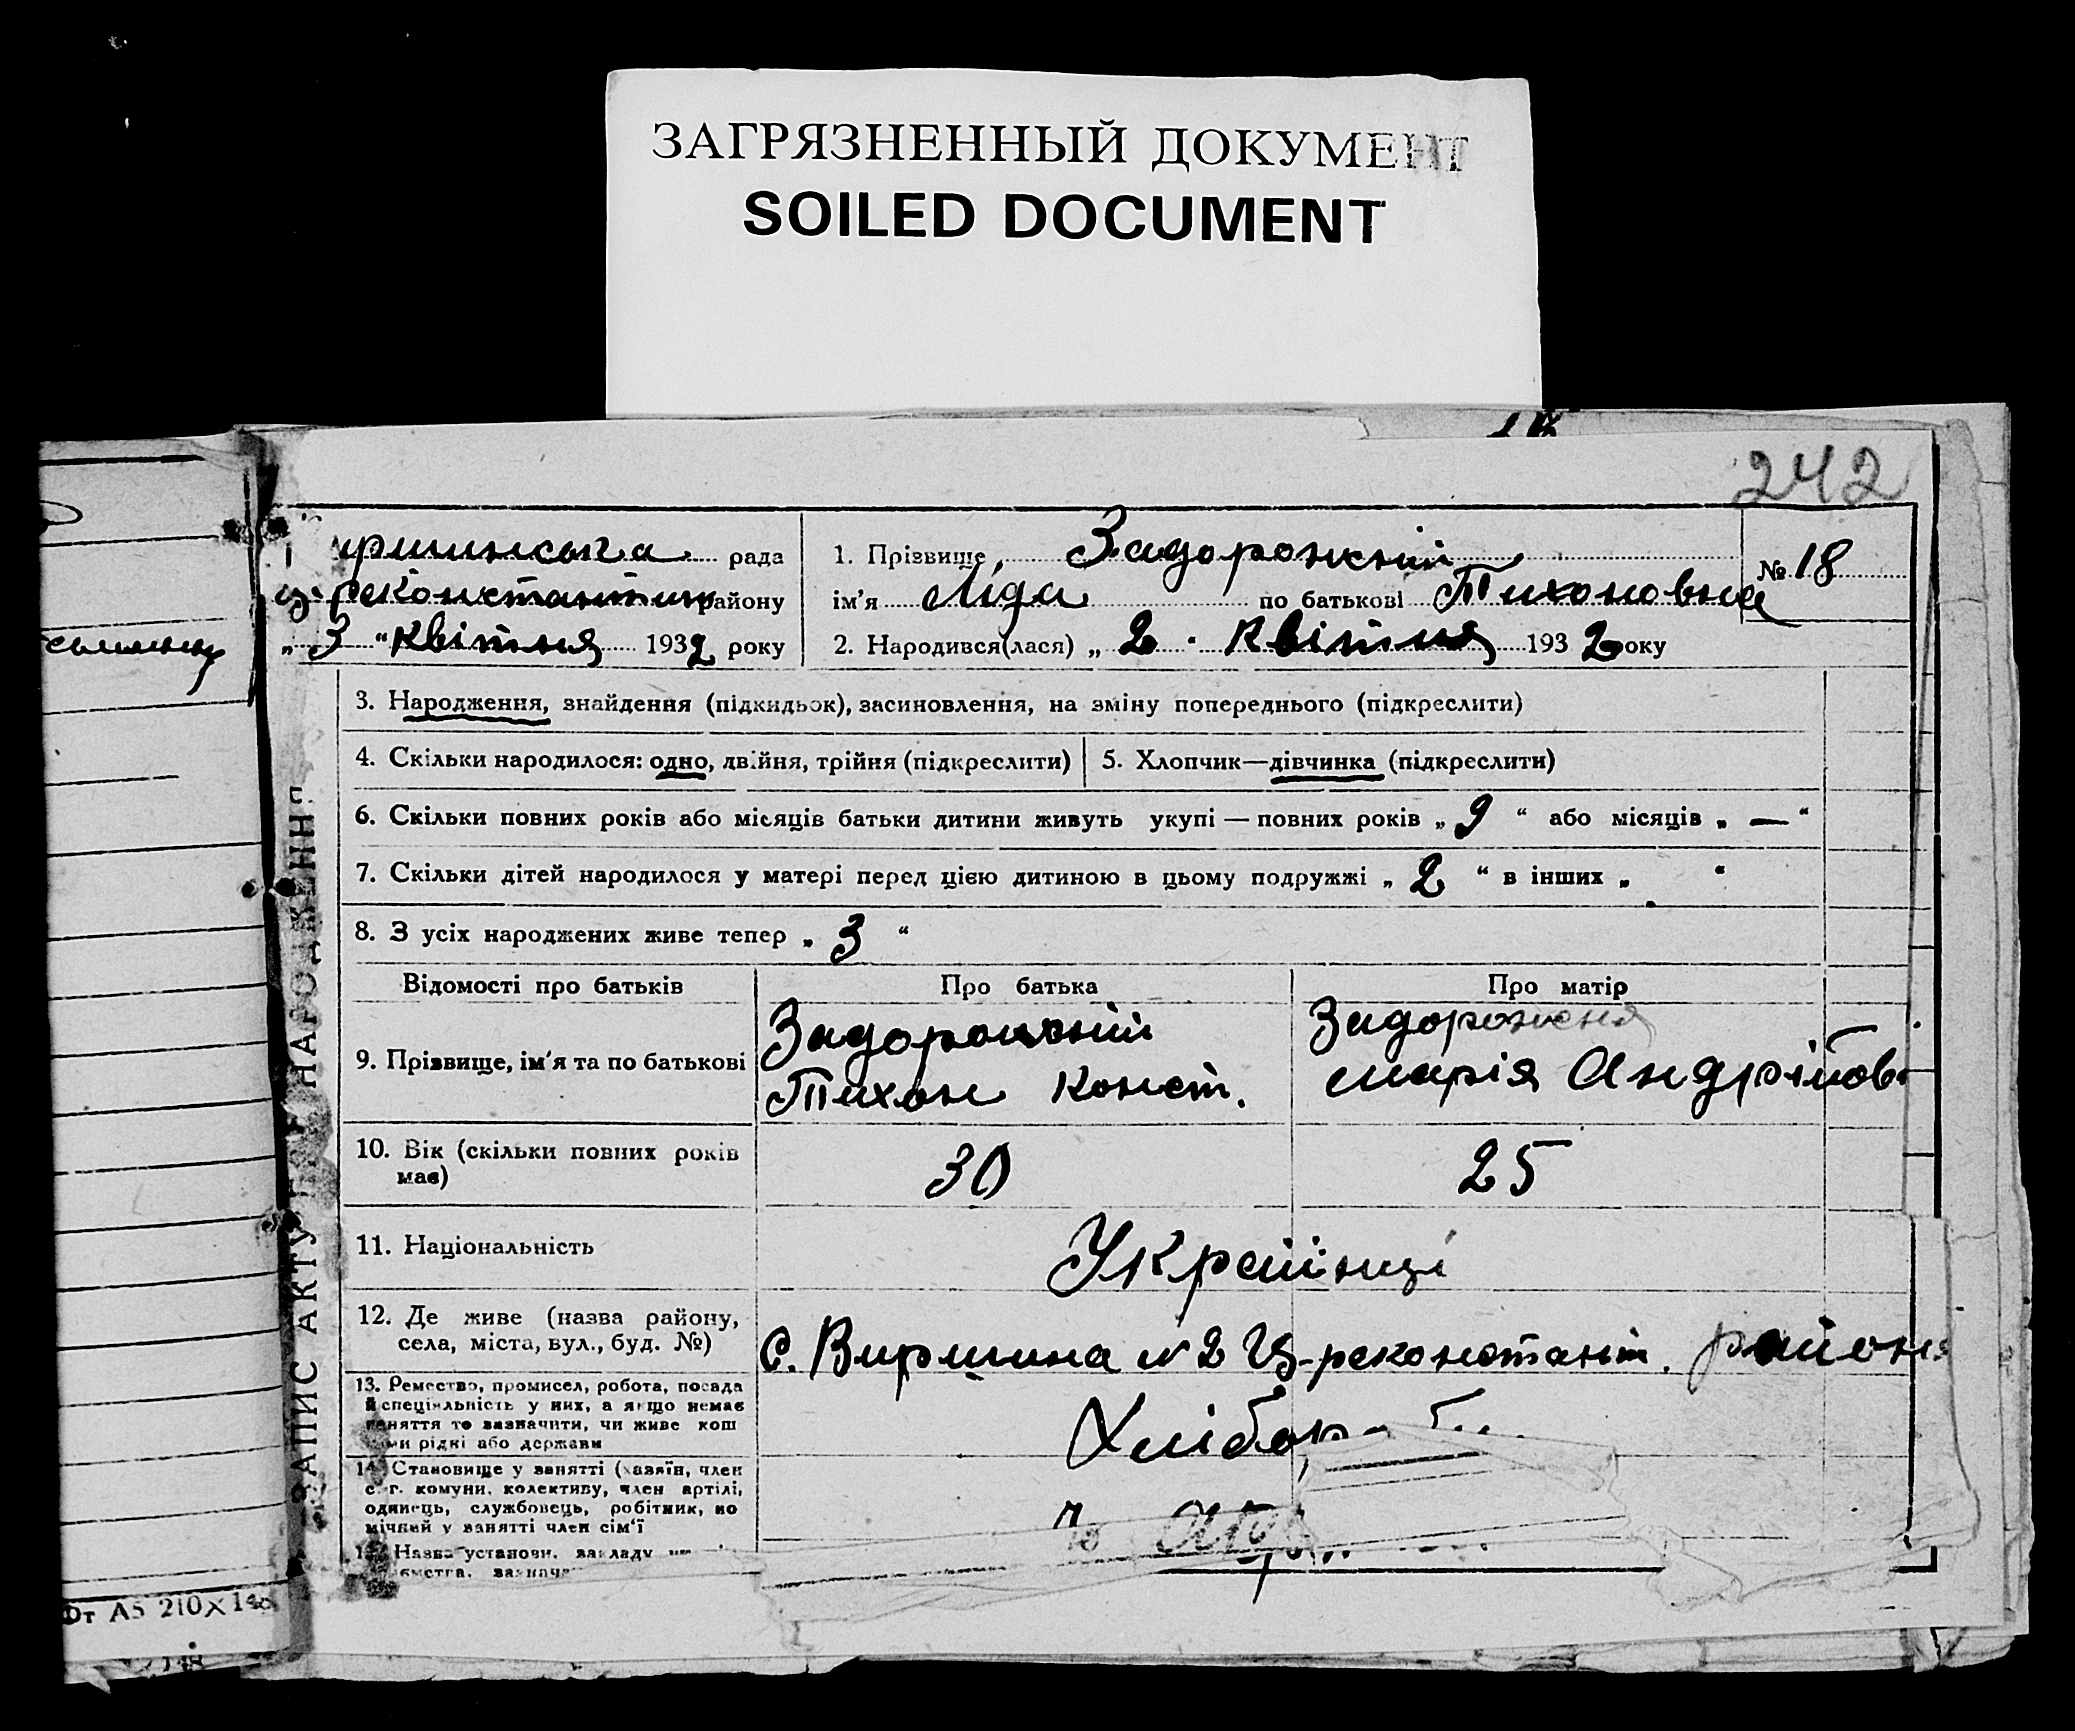 ЗАГРЯЗНЕННЫЙ ДОКУМЕНТ
SOILED DOCUMENT
242
рада
району
„ 3 “ Квітня 1932 року
1. Прізвище, Задорожній
ім'я Ліда по батькові Тихоновна
№ 18
2. Народився(лася) „ 2 . Квітня 1932 року
3. Народження, знайдення (підкидьок), засиновлення, на зміну попереднього (підкреслити)
4. Скільки народилося: одно, двійня, трійня (підкреслити)
5. Хлопчик—дівчинка (підкреслити)
6. Скільки повних років або місяців батьки дитини живуть укупі — повних років „ 9 “ або місяців „ — “
7. Скільки дітей народилося у матері перед цією дитиною в цьому подружжі „ 2 “ в інших „ “
8. З усіх народжених живе тепер „ 3 “
Відомості про батьків
Про батька
Про матір
9. Прізвище, ім'я та по батькові
Задорожній
Тихон Конст.
Задорожня
Марія Андрійов
10. Вік (скільки повних років
має)
30
25
11. Національність
Українці
12. Де живе (назва району,
села, міста, вул., буд. №)
с. Виршина №2 район
13. Ремество, промисел, робота, посада
й спеціяльність у них, а якщо немає
заняття то зазначити, чи живе кош
рідні або держави
Хлібороб
14. Становище у занятті (хазяїн, член
с.-г. комуни, колективу, член артілі,
одинець, службовець, робітник, по
мічний у занятті член сім'ї
Назва установи, закладу
ЗАПИС АКТУ ПРО НАРОДЖЕННЯ
А5 210×148